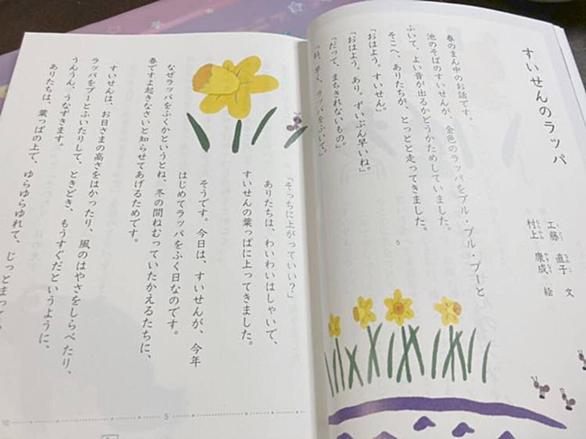 すいせんのラッパ
工藤 直子 文
村上 康成 絵
春のまん中のお話です。
池のそばのすいせんが、金色のラッパをプル・プル・プーと
ふいて、よい音が出るかどうかためしていました。
そこへ、ありたちが、とっとと走ってきました。
「おはよう。すいせん」
「おはよう、あり。ずいぶん早いね。」
「だって、まちきれないもの」
早く、ラッパをふいて。」
「そっちに上がっていい？」
ありたちは、わいわいはしゃいで、
すいせんの葉っぱに上ってきました。
そうです。今日は、すいせんが、今年
はじめてラッパをふく日なのです。
なぜラッパをふくかというとね、冬の間ねむっていたかえるたちに、
春ですよ起きなさいと知らせてあげるためです。
すいせんは、お日さまの高さをはかったり、風のはやさをしらべたり、
ラッパをプーとふいたりして、ときどき、もうすぐだというように、
うんうん、うなずきます。
ありたちは、葉っぱの上で、ゆらゆらゆれて、じっとまって
5